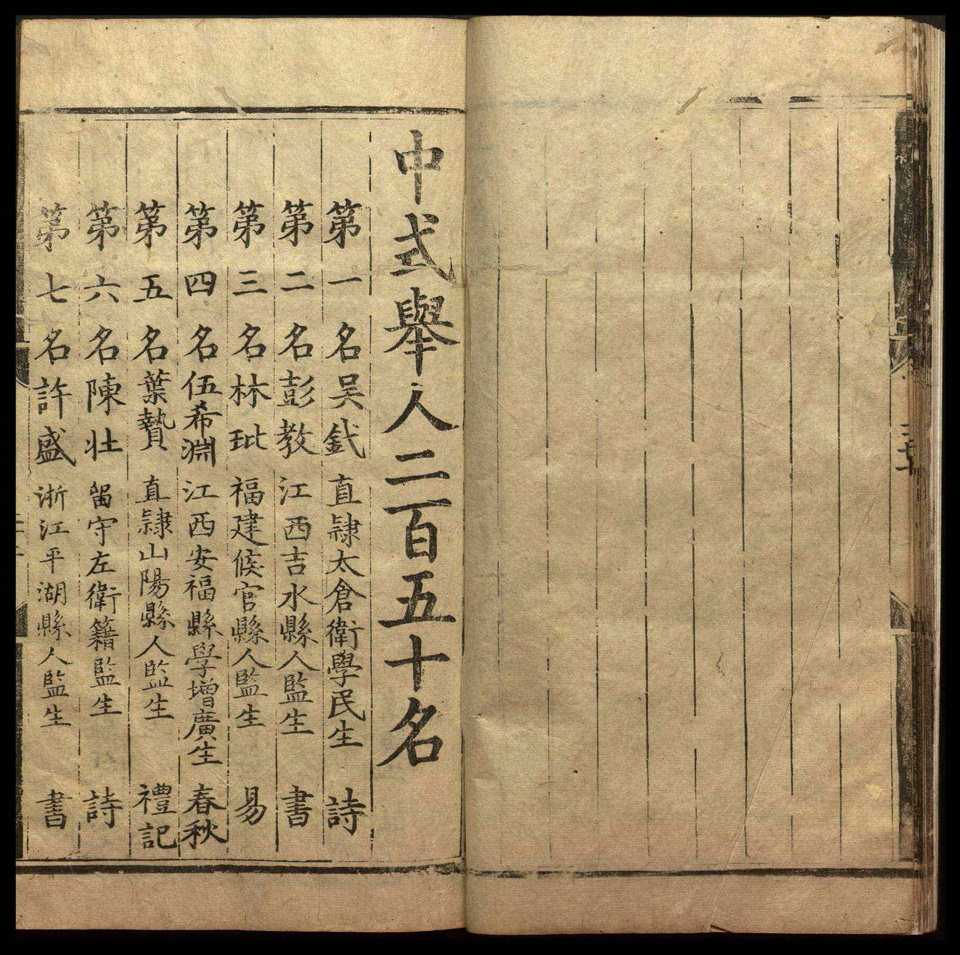 中式舉人二百五十名
第一名吳釴 直隷太倉衛學民生 詩
第二名彭教 江西吉水縣人監生 書
第三名林玭 福建候官縣人監生 易
第四名伍希淵 江西安福縣學增廣生 春秋
第五名葉贄 直隷山陽縣人監生 禮記
第六名陳壯 留守左衛籍監生 詩
第七名許盛 浙江平湖縣人監生 書